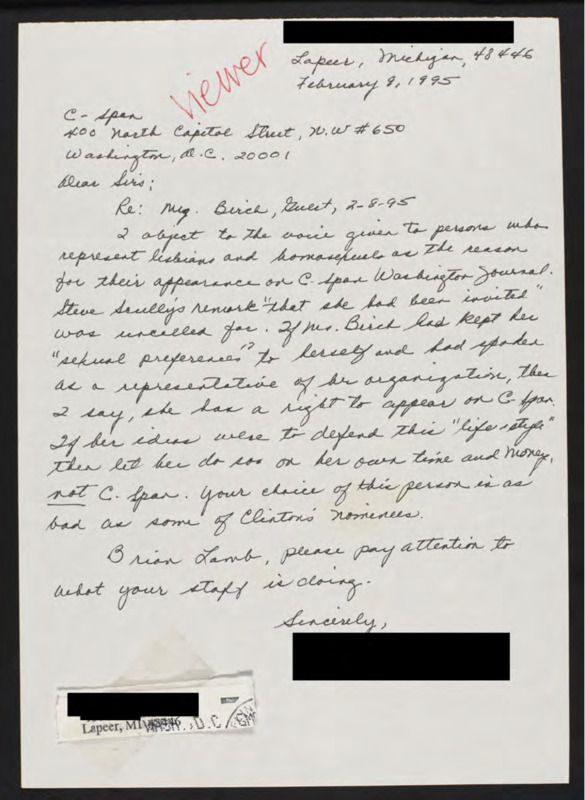 viewer
Lapeer, Michigan, 48446
February 9, 1995
C-Span
400 North Capitol Street, N.W #650
Washington, D.C. 20001
Dear Sirs;
Re: Mrg. Birch, Guest, 2-8-95
I object to the voice given to persons who
represent lisbians and homosexuals as the reason
for their appearance on C-Span Washington Journal.
Steve Scully's remark "that she had been invited"
was uncalled for. If Ms. Birch had kept her
"sexual preferences" to herself and had spoken
as a representative of her organization, then
I say, she has a right to appear on C-Span.
If her ideas were to defend this "life style"
then let her do soo on her own time and money,
not C-Span. Your choice of this person is as
bad as some of Clinton's nominees.
Brian Lamb, please pay attention to
what your staff is doing.
Sincerely,
Lapeer, MI 48446
WASH., D.C